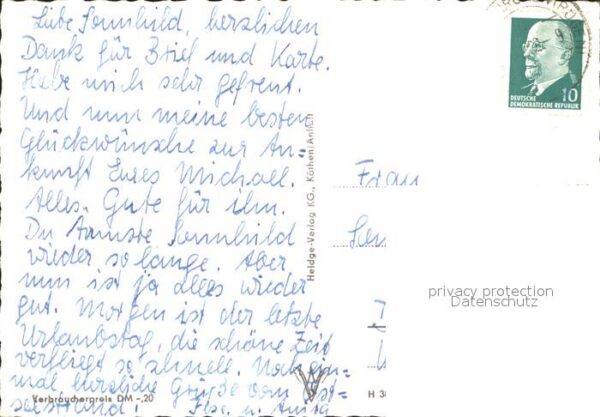 Liebe Sonnhild, herzlichen
Dank für Brief und Karte.
Habe mich sehr gefreut.
Und nun meine besten
Glückwünsche zur An-
kunft Eures Michael.
Alles Gute für ihn.
Du Ärmste Sonnhild
wieder so lange. Aber
nun ist ja alles wieder
gut. Morgen ist der letzte
Urlaubstag, die schöne Zeit
verfliegt so schnell. Noch ein-
mal herzliche Grüße vom Ost-
seestrand!
Verbraucherpreis DM -,20
Heldge-Verlag KG., Köthen/Anhalt
DEUTSCHE
DEMOKRATISCHE REPUBLIK
10
Frau
privacy protection
Datenschutz